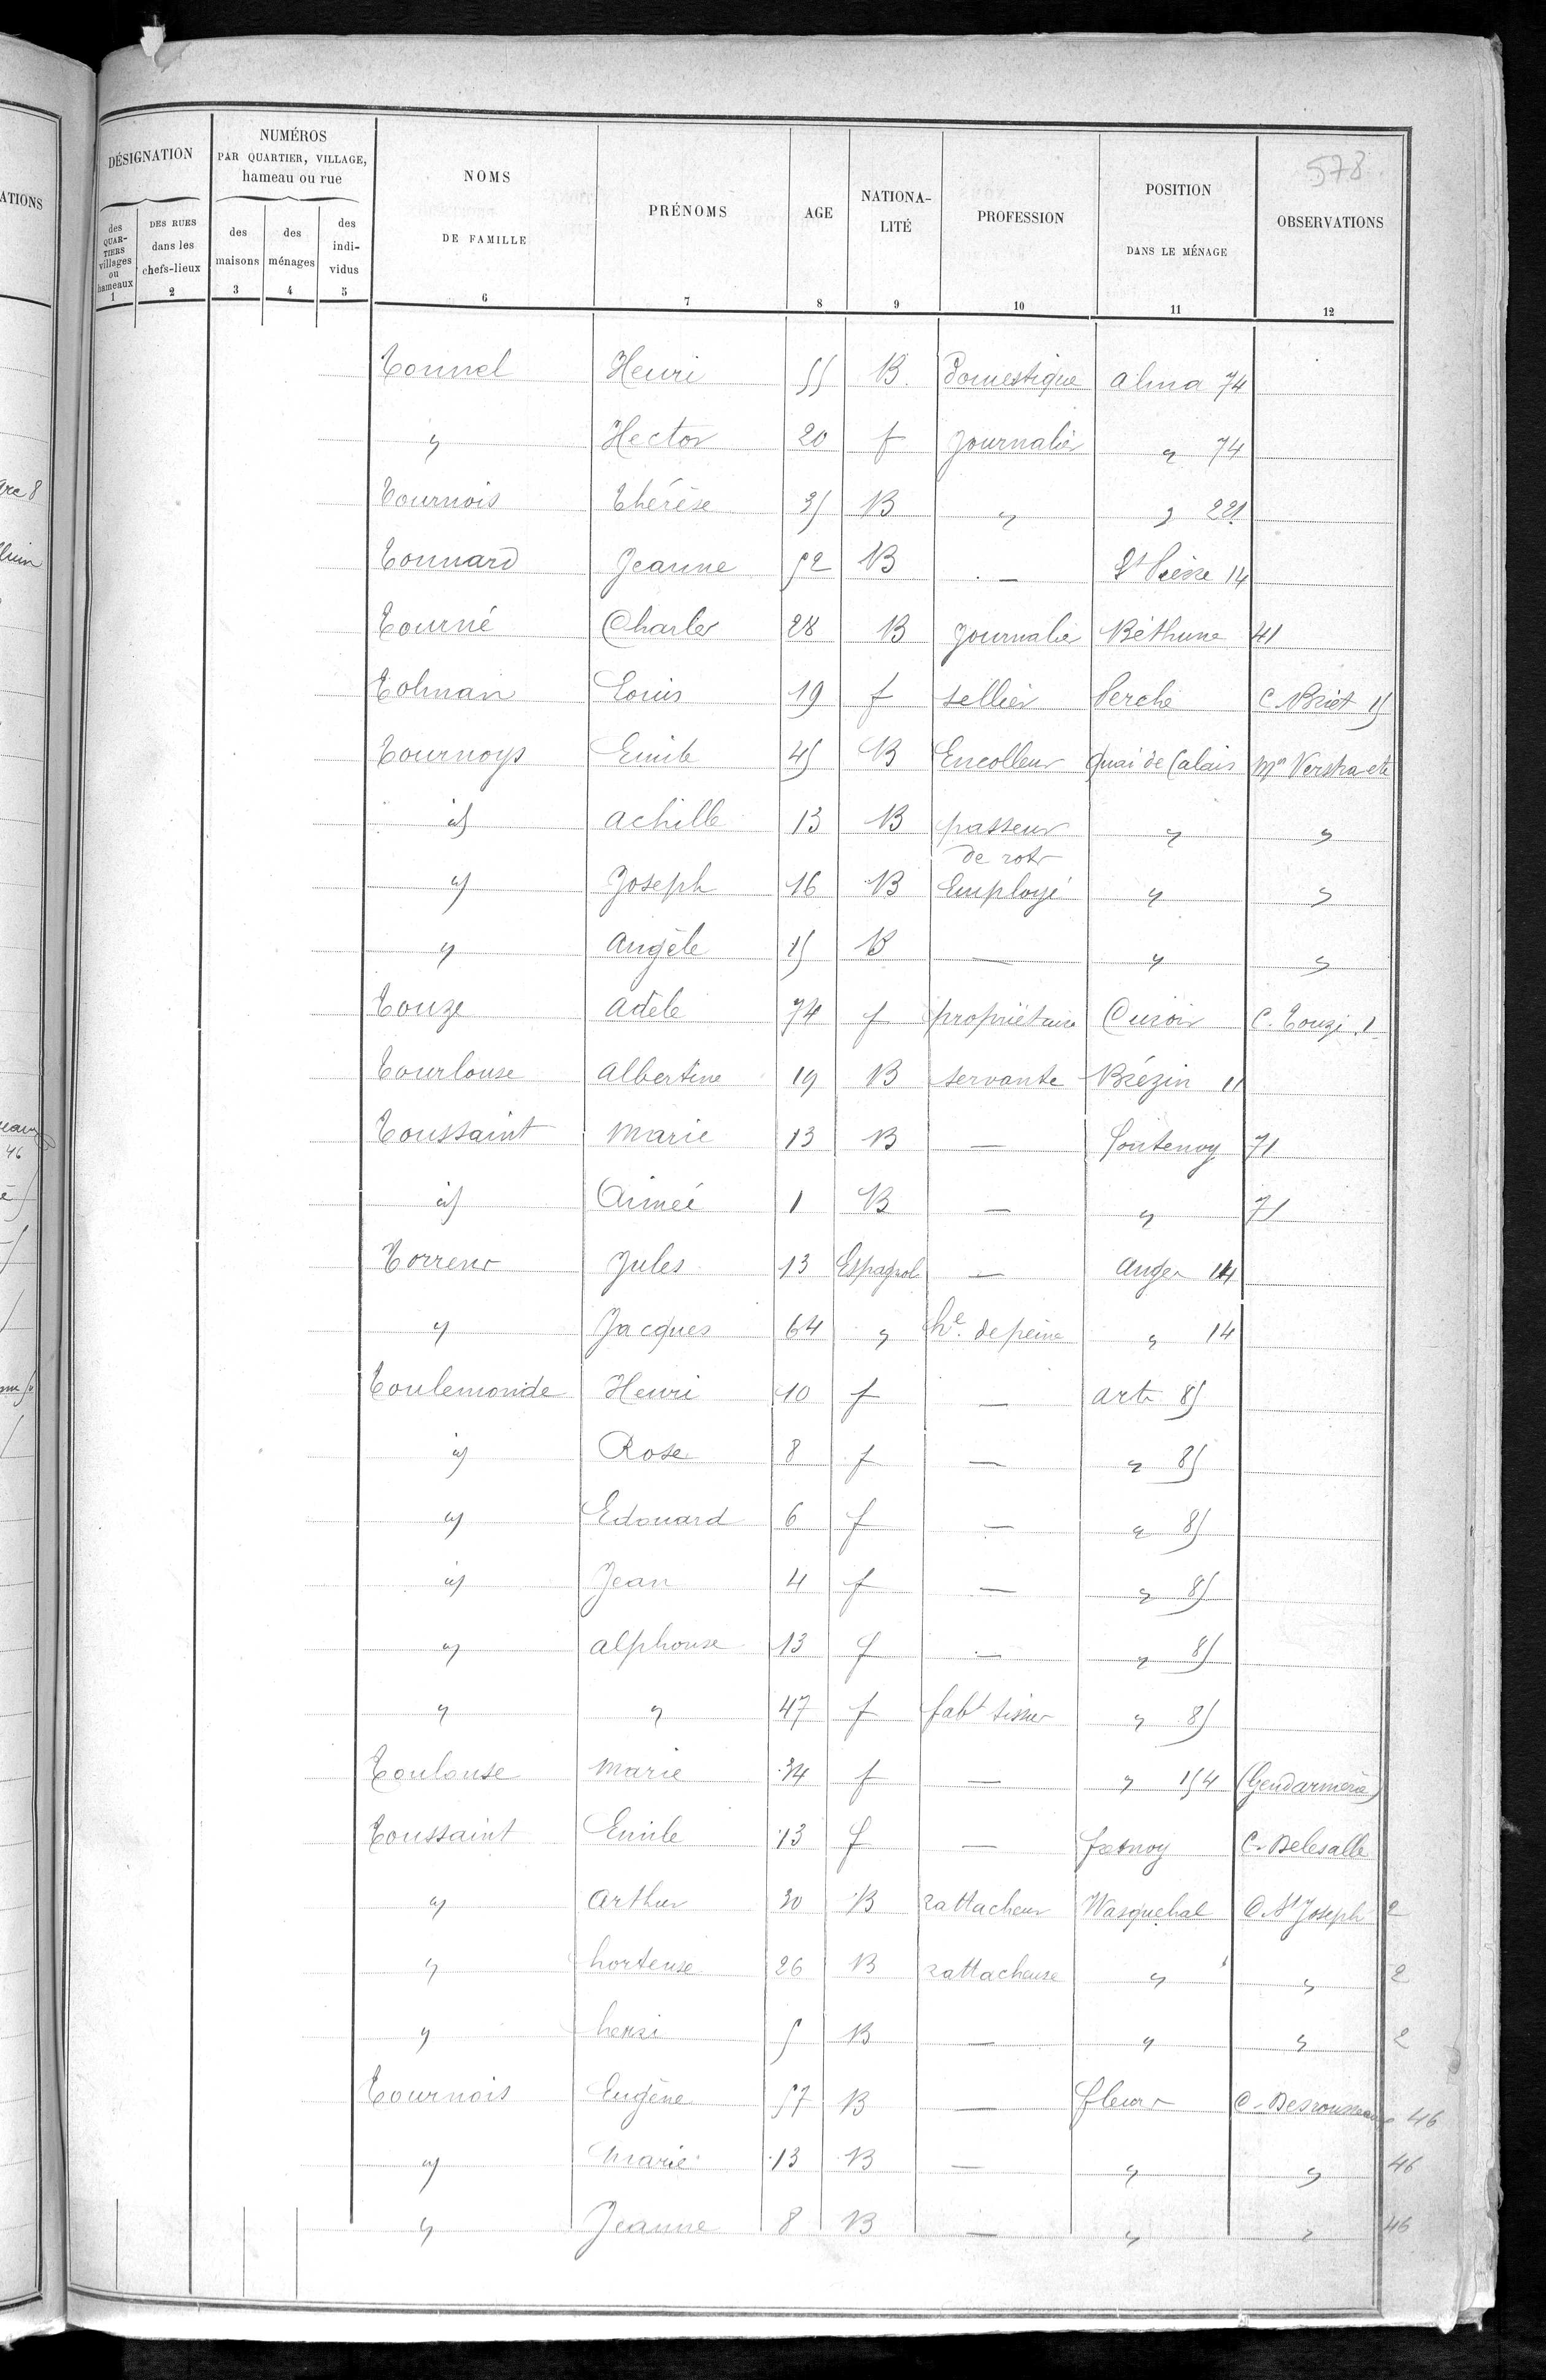 578
DÉSIGNATION
NUMÉROS
PAR QUARTIER, VILLAGE,
hameau ou rue
NOMS
DE FAMILLE
PRÉNOMS
AGE
NATIONA-
LITÉ
PROFESSION
POSITION
DANS LE MÉNAGE
OBSERVATIONS
des
QUAR-
TIERS
villages
ou
hameaux
DES RUES
dans les
chefs-lieux
des
maisons
des
ménages
des
indi-
vidus
1 2 3 4 5 6 7 8 9 10 11 12
Tonnel Henri 55 B. Domestique Alma 74
" Hector 20 f Journalier " 74
Tournois Thérèse 35 B " " 221
Tonnard Jeanne 52 B — St Pierre 14
Tourné Charles 28 B Journalier Béthune 41
Tolman Louis 19 f sellier Perche C. Briet 15
Tournoys Emile 45 B Encolleur Quai de Calais Mon Verstraete
id Achille 13 B passeur " "
de rots
id Joseph 16 B Employé " "
" Angèle 15 B — " "
Touze Adèle 74 f propriétaire Curoir C. Touzé 1
Tourlouse Albertine 19 B servante Brézin 11
Toussaint Marie 13 B — Fontenoy 71
id Aimée 1 B — " 71
Torrens Jules 13 Espagnol — Anges 14
" Jacques 64 " he. de peine " 14
Toulemonde Henri 10 f — arts 85
id Rose 8 f — " 85
id Edouard 6 f — " 85
id Jean 4 f — " 85
id Alphonse 13 f — " 85
" " 47 f fabt tissus " 85
Toulouse Marie 34 f — " 154 (Gendarmerie)
Toussaint Emile 13 f — C. Delesalle
" Arthur 30 B rattacheur Wasquehal C. St Joseph 2
" hortense 26 B rattacheuse " " 2
" henri 5 B — " " 2
Tournois Eugène 57 B — fleurs C. Desrousseaux 46
" Marie 13 B — " " 46
" Jeanne 8 B — " " 46